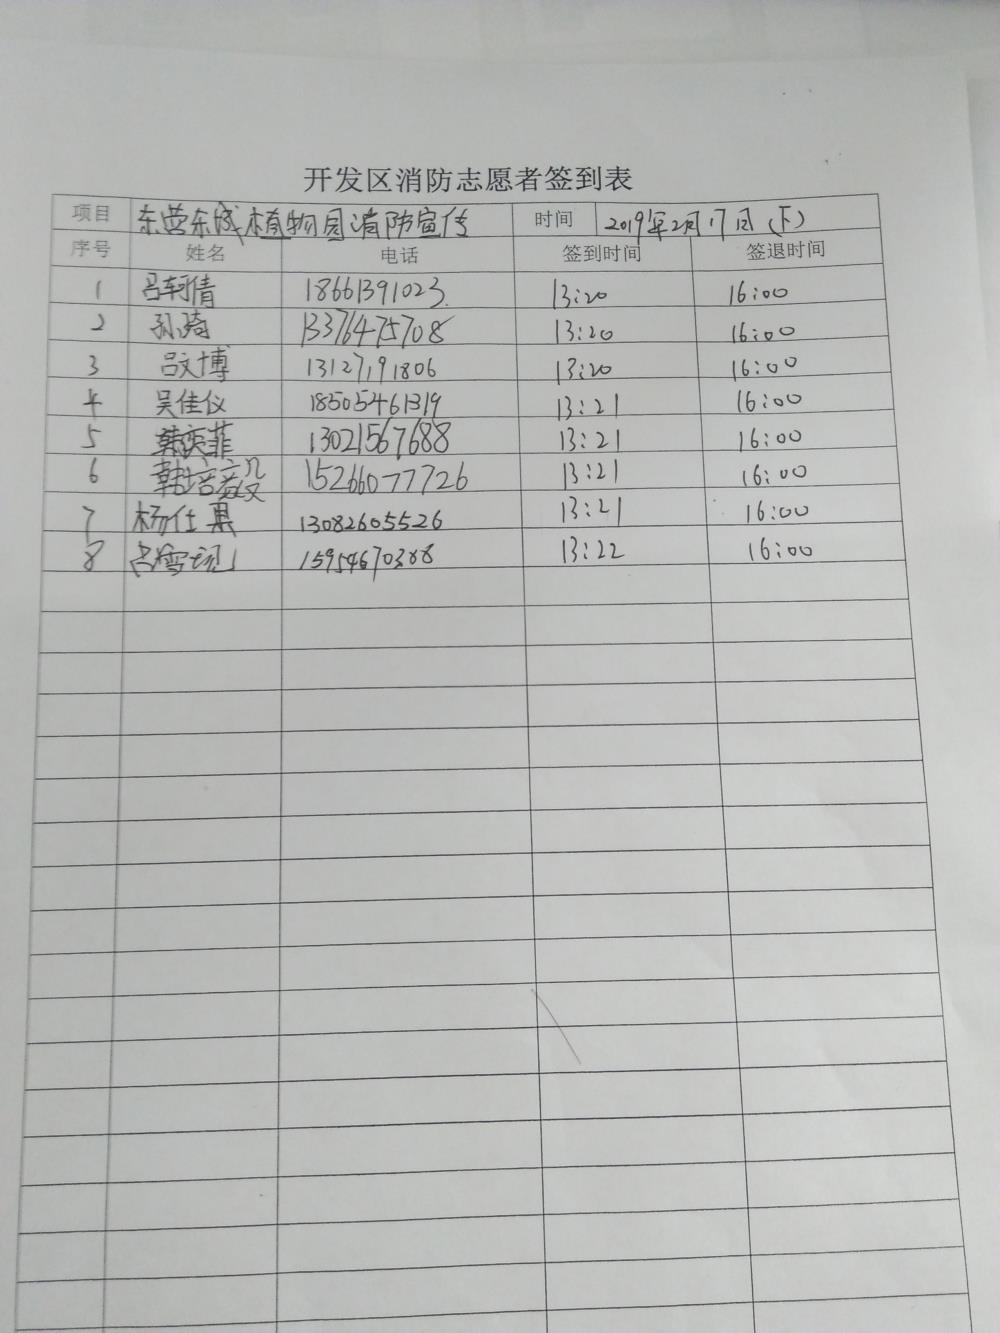 开发区消防志愿者签到表
项目 东营东城植物园消防宣传 时间 2019年2月17日(下)
序号 姓名 电话 签到时间 签退时间
1 吕轲倩 18661391023 13:20 16:00
2 孙琦 13376475708 13:20 16:00
3 吕文博 13127191806 13:20 16:00
4 吴佳仪 18505461319 13:21 16:00
5 韩奕菲 13021567688 13:21 16:00
6 韩培 15266077726 13:21 16:00
7 杨仕果 13082605526 13:21 16:00
8 13:22 16:00